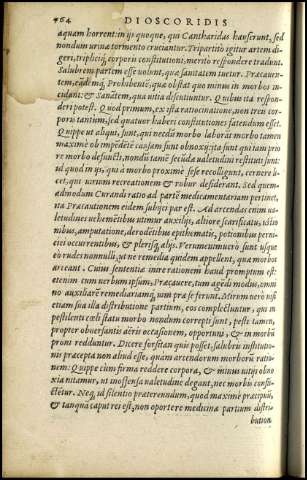 464 DIOSCORIDIS
aquam horrent: in ijs quoque, qui Cantharidas hauserunt, sed
nondum urinæ tormento cruciantur. Tripartitò igitur artem di-
geri, tripliciq; corporis constitutioni, meritò respondere tradunt.
Salubrem partem esse uolunt, quæ sanitatem tuetur. Præcauen-
tem, eãdemq; Prohibentẽ, quæ obstat quo minus in morbos in-
cidant: & Sanãtem, qua uitia discutiuntur. Quibus ita respon-
deri potest. Quòd primùm, ex ista ratiocinatione, non tres cor-
poris tantùm, sed quatuor haberi constitutiones fatendum esset.
Quippe ut aliqui sunt, qui nondũ morbo laborãt morbo tamen
maximè ob impẽdẽtẽ causam sunt obnoxij: ita sunt qui tam pro
re morbo defuncti, nondũ tamẽ secũdæ ualetudini restituti sunt:
id quod in ijs, qui à morbo proximè sese recolligunt, cernere li-
cet, qui uirium recreationem & robur desiderant. Sed quem-
admodum Curandi ratio ad partẽ medicamentariam pertinet,
ita Præcautionem eidem subijci par est. Ad arcendas enim ua-
letudines uehemẽtibus utimur auxilijs, altiore scarificatu, ustio
nibus, amputatione, derodẽtibus epithematis, potionibus perni-
ciei occurrentibus, & plerisq; alijs. Peruenit uerò sunt usque
eò rudes nonnulli, ut ne remedia quidem appellent, quæ morbos
arceant. Cuius sententiæ inire rationem haud promptum est:
etenim cum uerbum ipsum, Præcauere, tum agẽdi modus, omni
no auxiliarẽ remediariamq; uim præ se ferunt. Mirum uerò nisi
etiam sua illa distributione partium, eos complectũtur, qui in
pestilenti cœli statu morbo nondum correpti sunt, peste tamen,
propter obuersantis aëris occasionem, opportuni, & in morbũ
proni redduntur. Dicere forsitan quis posset, salubris institutio-
nis præcepta non aliud esse, quàm arcendorum morborũ ratio-
nem: Quippe cùm firma reddere corpora, & minus uitijs obno
xia nitamur, ut inoffensa ualetudine degant, nec morbis confli-
ctẽtur. Neq; id silentio præterendum, quod maximè præcipuũ,
& tanquã caput rei est, non oportere medicinæ partium distri-
bution.